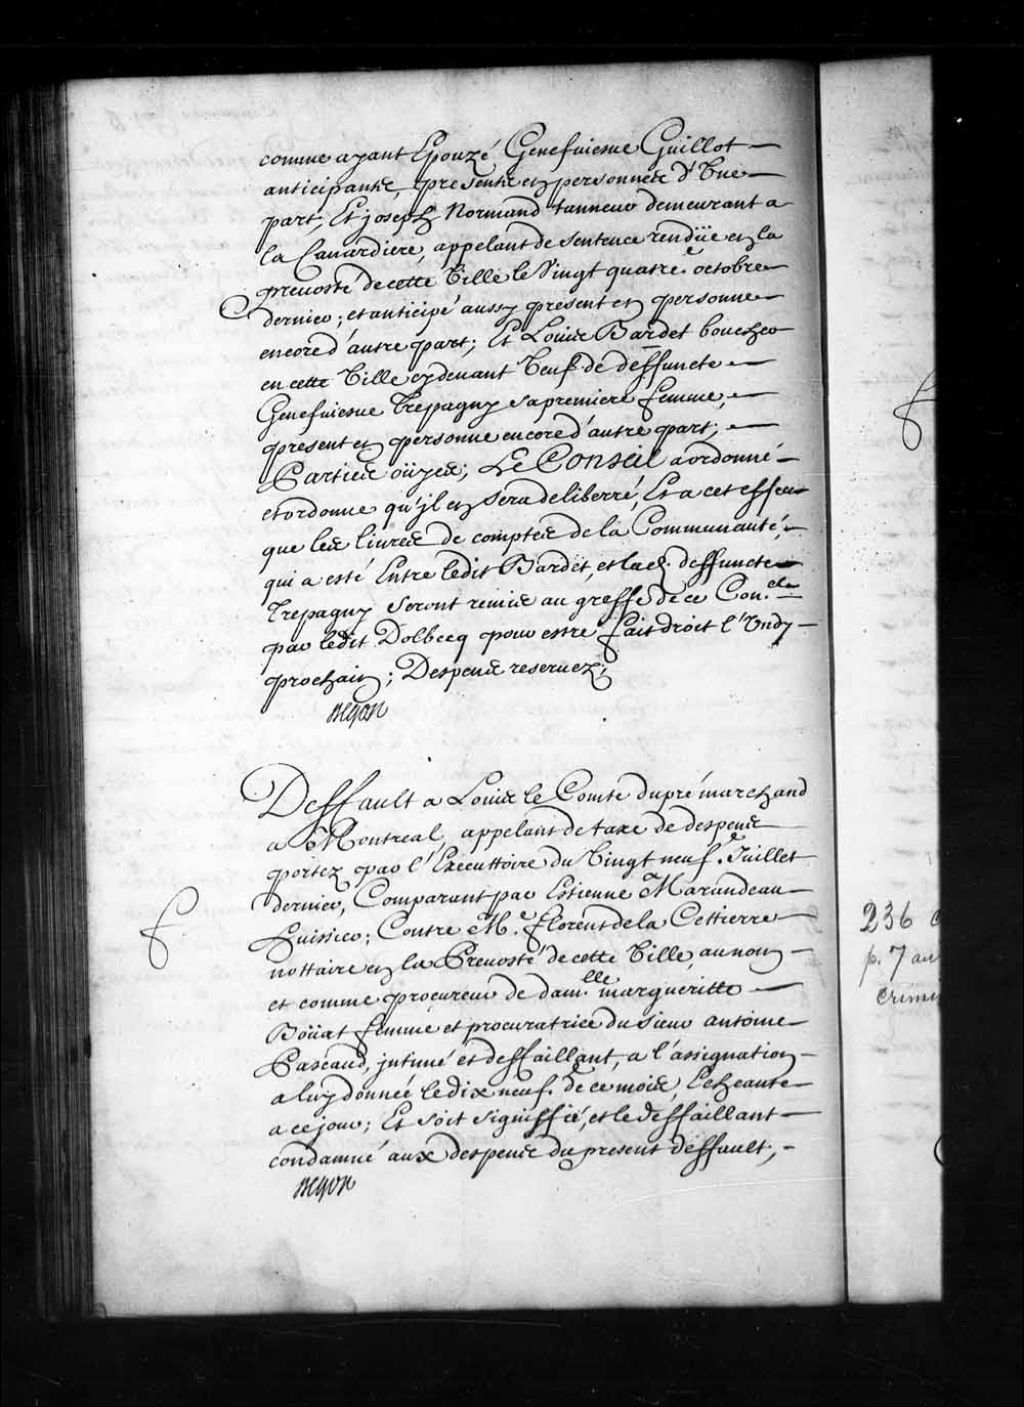 comme ayant Epouzé Genefuieue Guillot
anticipante, presente en personne d'Une
part, Et joseph Normand tanneur demeurant a
la Canardiere, appelant de sentence rendüe en la
preuosté de cette Ville le Vingt quatre.e octobre
dernier; et anticipé aussy present en personne
encore d'autre part; Et Louis Bardet boucher
en cette Ville cydeuant Veuf de deffuncte
Genefuieue Trepagny sa premiere femme,
present en personne encore d'autre part;
Parties oüyes; Le Conseil a ordonné
et ordonne qu'jl en sera deliberré, Et a cet effect
que les liures de comptes de la Communauté,
qui a esté Entre ledit Bardet, et lad. deffuncte
Trepagny seront remis au greffe de ce Con.el
par ledit Dolbecq pour estre fait droit l'Undy
prochain; Despens reseruez;
Begon
Deffault a Louis le Comte dupré marchand
a Montreal, appelant de taxe de despens
portez par l'Executtoire du Vingt neuf.e Juillet
dernier, Comparant par Estienne Marandeau
huissier; Contre M.e florent de la Cettierre
nottaire en la Preuosté de cette Ville, au nom
et comme procureur de dam.lle margueritte
Boüat femme et procuratrice du sieur antoine
Pascaud, jntimé et deffaillant, a l'assignation
a luy donneé le dix neuf. de ce mois, Echeante
a ce jour; Et soit signiffié, et le deffaillant
condamné aux despens du present deffault;
Begon
236
p. 7 au
crimi